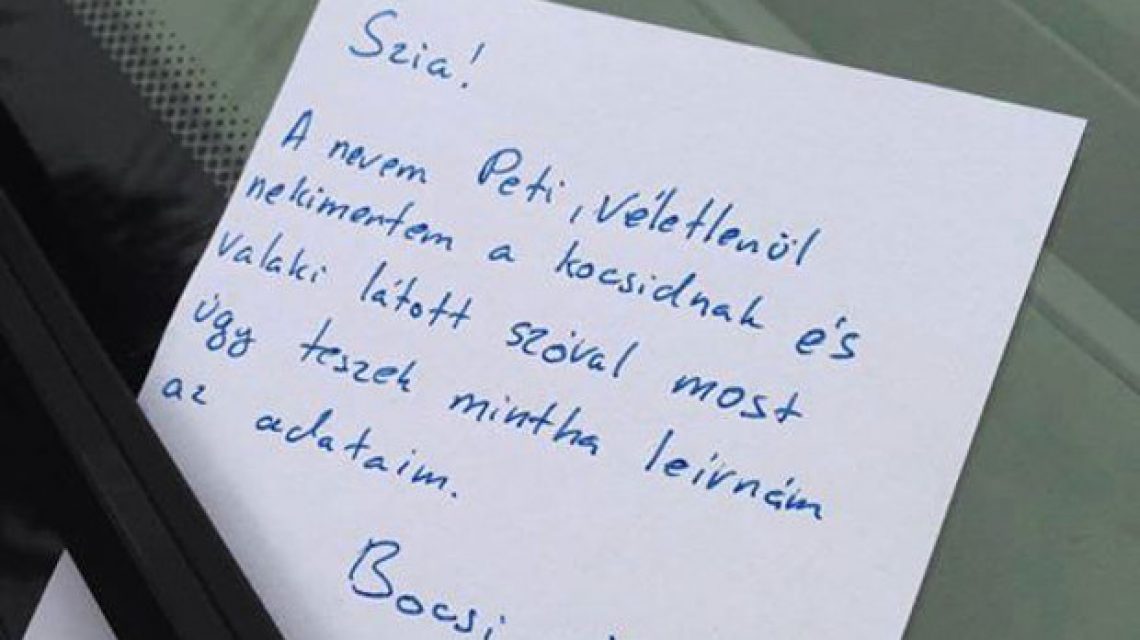 Szia!
A nevem Peti, véletlenül
nekimentem a kocsidnak és
valaki látott szóval most
úgy teszek mintha leírnám
az adataim.
Bocsi